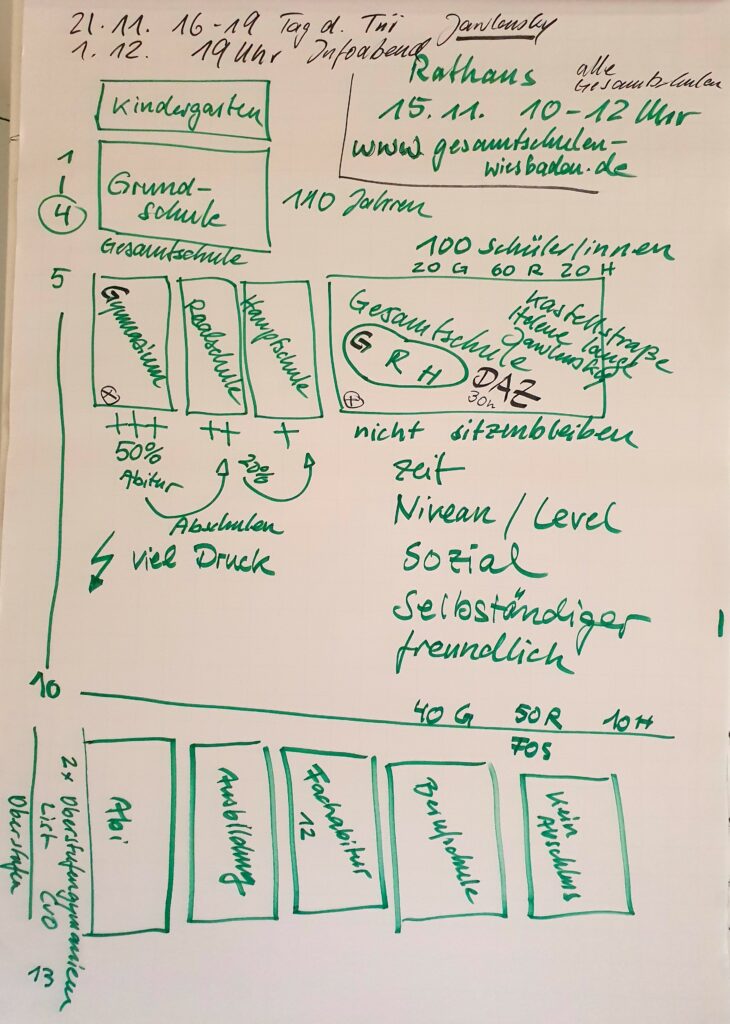 21.11. 16-19 Tag d. Tür Jawlensky
1.12. 19 Uhr Infoabend
Rathaus alle Gesamtschulen
15.11. 10-12 Uhr
www.gesamtschulen-
wiesbaden.de
Kindergarten
1
4
Grund-
schule
110 Jahren
Gesamtschule
100 Schüler/innen
20 G 60 R 20 H
5
Gymnasium
Realschule
Hauptschule
Gesamtschule
G R H
DAZ
30h
Kastellstraße
Helene Lange
Jawlensky
+++
++
+
50%
Abitur
20%
Abschulen
viel Druck
nicht sitzenbleiben
Zeit
Niveau / Level
Sozial
Selbständiger
freundlich
10
40 G 50 R 10 H
FOS
Abi
Ausbildung
Fachabitur
12
Berufschule
Kein
Abschluss
2x Oberstufengymnasien
List CVO
Oberstufen
13